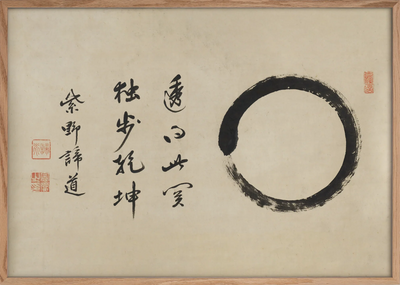 透得此関
独歩乾坤
紫野諦道